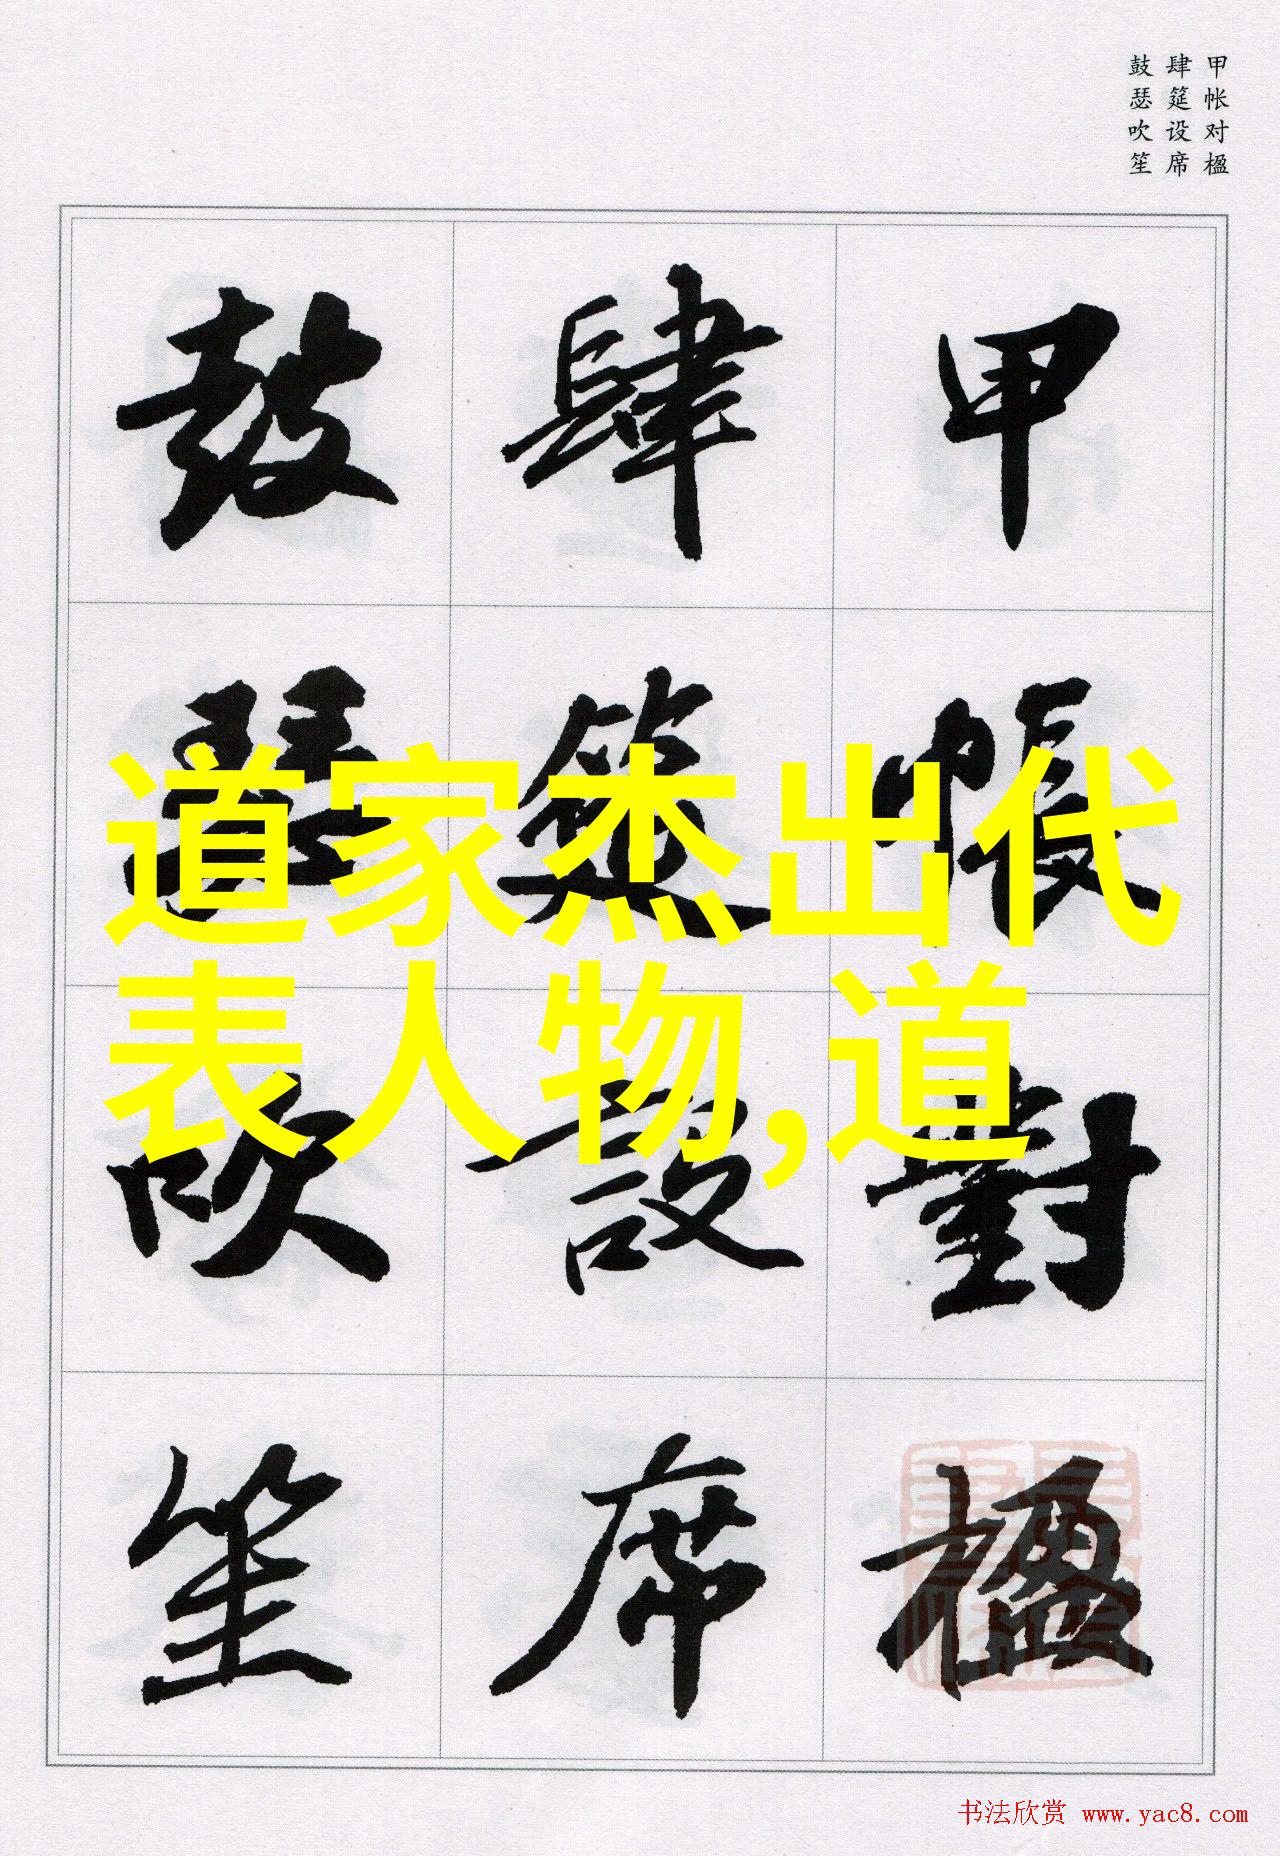 甲帐对楹
肆筵设席
鼓瑟吹笙
甲帳對楹
肆筵設席
鼓瑟吹笙
道家杰出代
表人物,道
书法欣赏 www.yac8.com